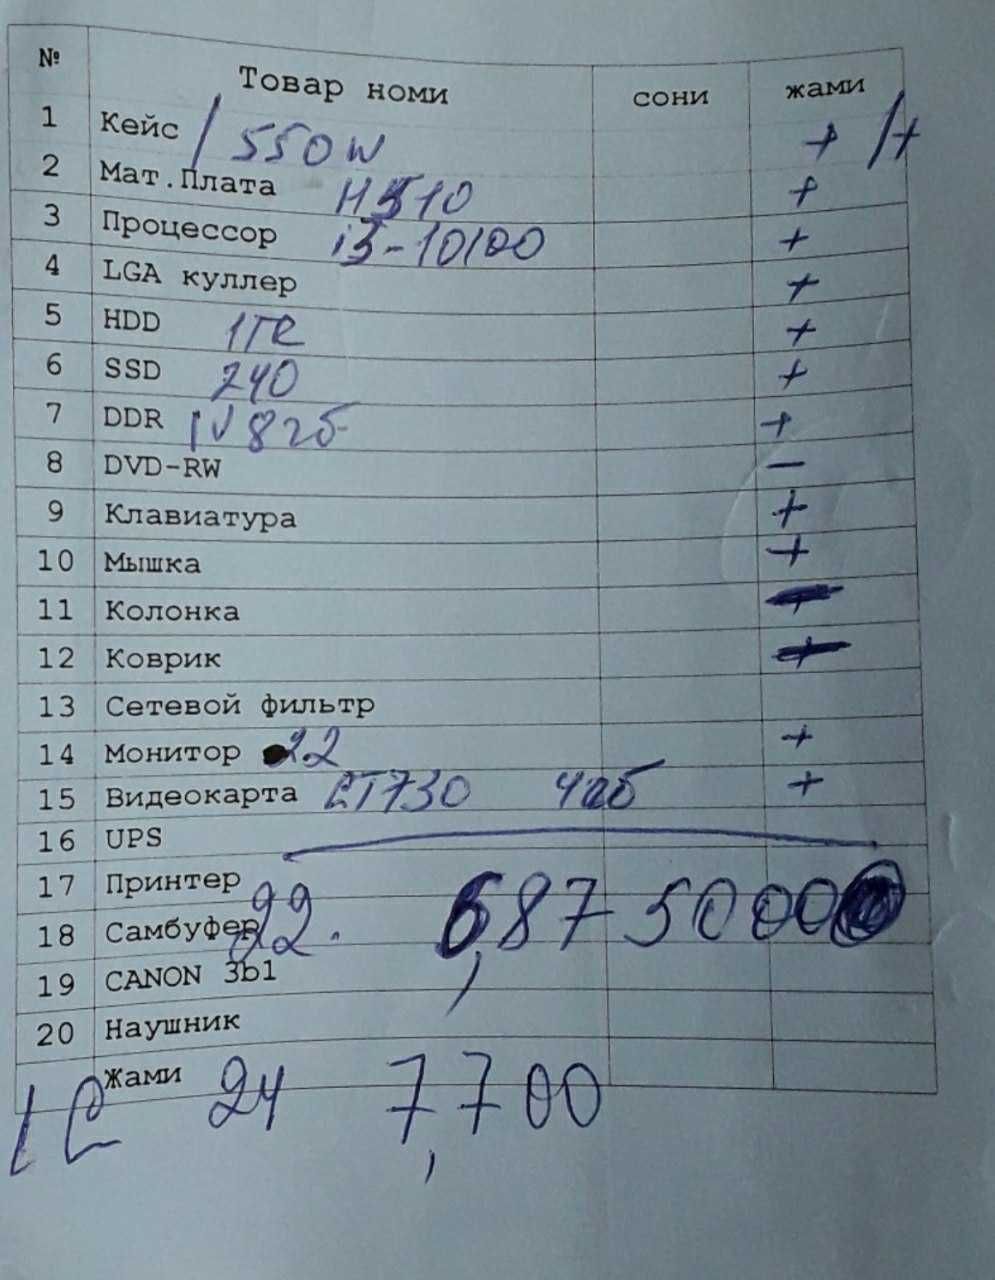 № Товар номи сони жами
1 Кейс / 550W + /+
2 Мат.Плата H510 +
3 Процессор i3-10100 +
4 LGA куллер +
5 HDD 1TB +
6 SSD 240 +
7 DDR IV 8гб +
8 DVD-RW —
9 Клавиатура +
10 Мышка +
11 Колонка
12 Коврик
13 Сетевой фильтр
14 Монитор 22 +
15 Видеокарта GT730 4гб +
16 UPS
17 Принтер
18 Самбуфер
22. 6,875000
19 CANON 3b1
20 Наушник
Жами
LG 24 7,700